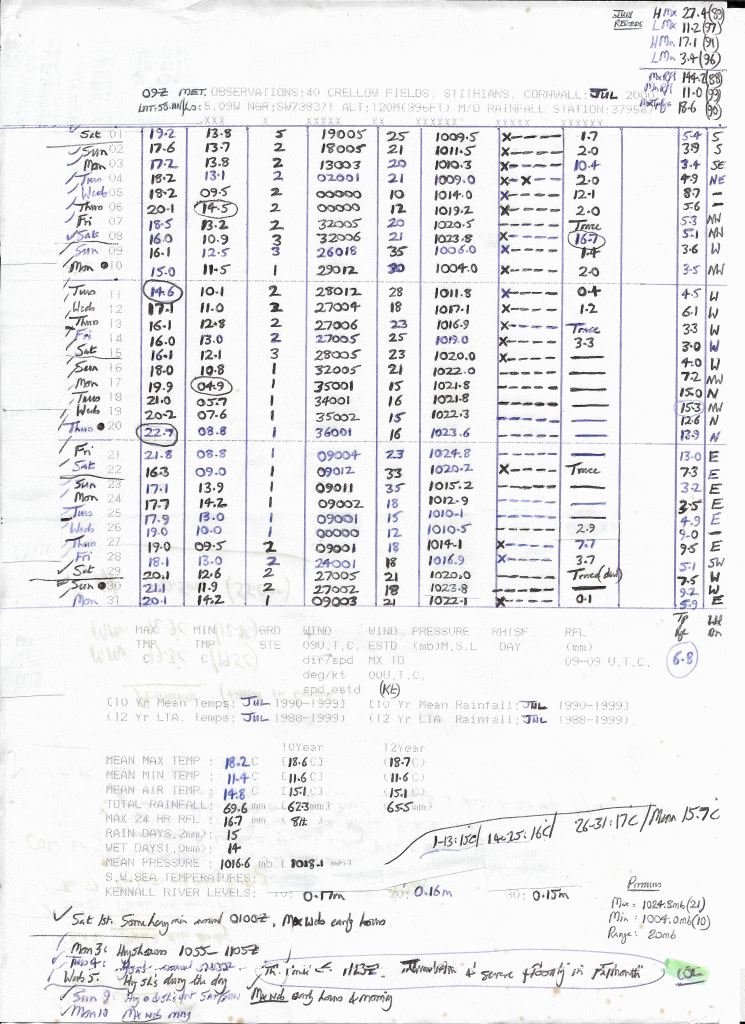 JULY RECORDS
H Mx 27.4 (89)
L Mx 11.2 (97)
H Mn 17.1 (91)
L Mn 3.4 (96)
Mx Rfl 144.2 (88)
Mn Rfl 11.0 (99)
18.6 (90)
09Z MET. OBSERVATIONS: 40 CRELLOW FIELDS, STITHIANS, CORNWALL: JUL
LAT: 50.11N/Lo: 5.09W NGR:SW739371 ALT:120M(396FT) M/O RAINFALL STATION:
Sat 01 19.2 13.8 5 19005 25 1009.5 X---- 1.7 5.4 S
Sun 02 17.6 13.7 2 18005 21 1011.5 X---- 2.0 3.9 S
Mon 03 17.2 13.8 2 13003 20 1010.3 X---- 10.4 3.4 SE
Tues 04 18.2 13.1 2 02001 21 1009.0 X-X-- 2.0 4.9 NE
Weds 05 18.2 09.5 2 00000 10 1014.0 X---- 12.1 8.7 -
Thurs 06 20.1 14.5 2 00000 12 1019.2 X---- 2.0 5.6 -
Fri 07 18.5 13.2 2 32005 20 1020.5 ----- Trace 5.3 NW
Sat 08 16.0 10.9 3 32006 21 1023.8 X---- 16.7 5.1 NW
Sun 09 16.1 12.5 3 26018 35 1006.0 X---- 1.4 3.6 W
Mon 10 15.0 11.5 1 29012 30 1004.0 X---- 2.0 3.5 NW
Tues 11 14.6 10.1 2 28012 28 1011.8 X---- 0.4 4.5 W
Weds 12 17.1 11.0 2 27004 18 1017.1 X---- 1.2 6.1 W
Thurs 13 16.1 12.8 2 27006 23 1016.9 X---- Trace 3.3 W
Fri 14 16.0 13.0 2 27005 25 1019.0 X---- 3.3 3.0 W
Sat 15 16.1 12.1 3 28005 23 1020.0 X---- — 4.0 W
Sun 16 18.0 10.8 1 32005 21 1022.0 ----- — 7.2 NW
Mon 17 19.9 04.9 1 35001 15 1021.8 ----- — 15.0 N
Tues 18 21.0 05.7 1 34001 16 1021.8 ----- — 15.3 NW
Weds 19 20.2 07.6 1 35002 15 1022.3 ----- — 12.6 N
Thurs 20 22.7 08.8 1 36001 16 1023.6 ----- — 13.9 N
Fri 21 21.8 08.8 1 09004 23 1024.8 ----- — 13.0 E
Sat 22 16.3 09.0 1 09012 33 1020.2 X---- Trace 7.3 E
Sun 23 17.1 13.9 1 09011 35 1015.2 ----- — 3.2 E
Mon 24 17.7 14.2 1 09002 18 1012.9 ----- — 3.5 E
Tues 25 17.9 13.0 1 09001 15 1010.1 ----- — 4.9 E
Weds 26 19.0 10.0 1 00000 12 1010.5 ----- 2.9 9.0 -
Thurs 27 19.0 09.5 2 09001 18 1014.1 X---- 7.7 9.5 E
Fri 28 18.1 13.0 2 24001 18 1016.9 X---- 3.7 5.1 SW
Sat 29 20.1 12.6 2 27005 21 1020.0 ----- Trace (dew) 7.5 W
Sun 30 21.1 11.9 2 27002 18 1023.8 ----- — 9.2 W
Mon 31 20.1 14.2 1 09003 21 1022.1 X---- 0.1 5.9 E
MAX MIN GRD WIND WIND PRESSURE RHTSF RFL
TMP TMP STE 09U.T.C. ESTD (mb)M.S.L DAY (mm)
C C dir/spd MX TO 09-09 U.T.C.
deg/kt 00U.T.C. 6.8
spd.estd (Kt)
[10 Yr Mean Temps: JUL 1990-1999] [10 Yr Mean Rainfall: JUL 1990-1999]
(12 Yr LTA. Temps: JUL 1988-1999) (12 Yr LTA Rainfall: JUL 1988-1999).
10Year 12Year
MEAN MAX TEMP : 18.2 C [18.6 C] (18.7 C)
MEAN MIN TEMP : 11.4 C [11.6 C] (11.6 C)
MEAN AIR TEMP : 14.8 C [15.1 C] (15.1 C)
TOTAL RAINFALL: 69.6 mm [62.3 mm] (65.5 mm)
MAX 24 HR RFL : 16.7 mm 8th
RAIN DAYS,.2mm): 15
WET DAYS1,0mm): 14
MEAN PRESSURE : 1016.6 mb [1018.1 mb]
S.W.SEA TEMPERATURES:
1-13: 15c/ 14-25: 16c/ 26-31: 17c / Mean 15.7c
KENNALL RIVER LEVELS: 10: 0.17m 20: 0.16m 30: 0.15m
Pressures
Max: 1024.8mb (21)
Min: 1004.0mb (10)
Range: 20mb
Sat 1st. Some heavy rain around 0100Z, Mx Wnd early hours
Mon 3: Hvy showers 1055-1105Z
Tues 4:
Weds 5: Hvy sh's during the day
1125Z. Thunderstorm & severe flooding in Falmouth
Sun 9: Mx Wnd early hours & morning
Mon 10 Mx wnd mng